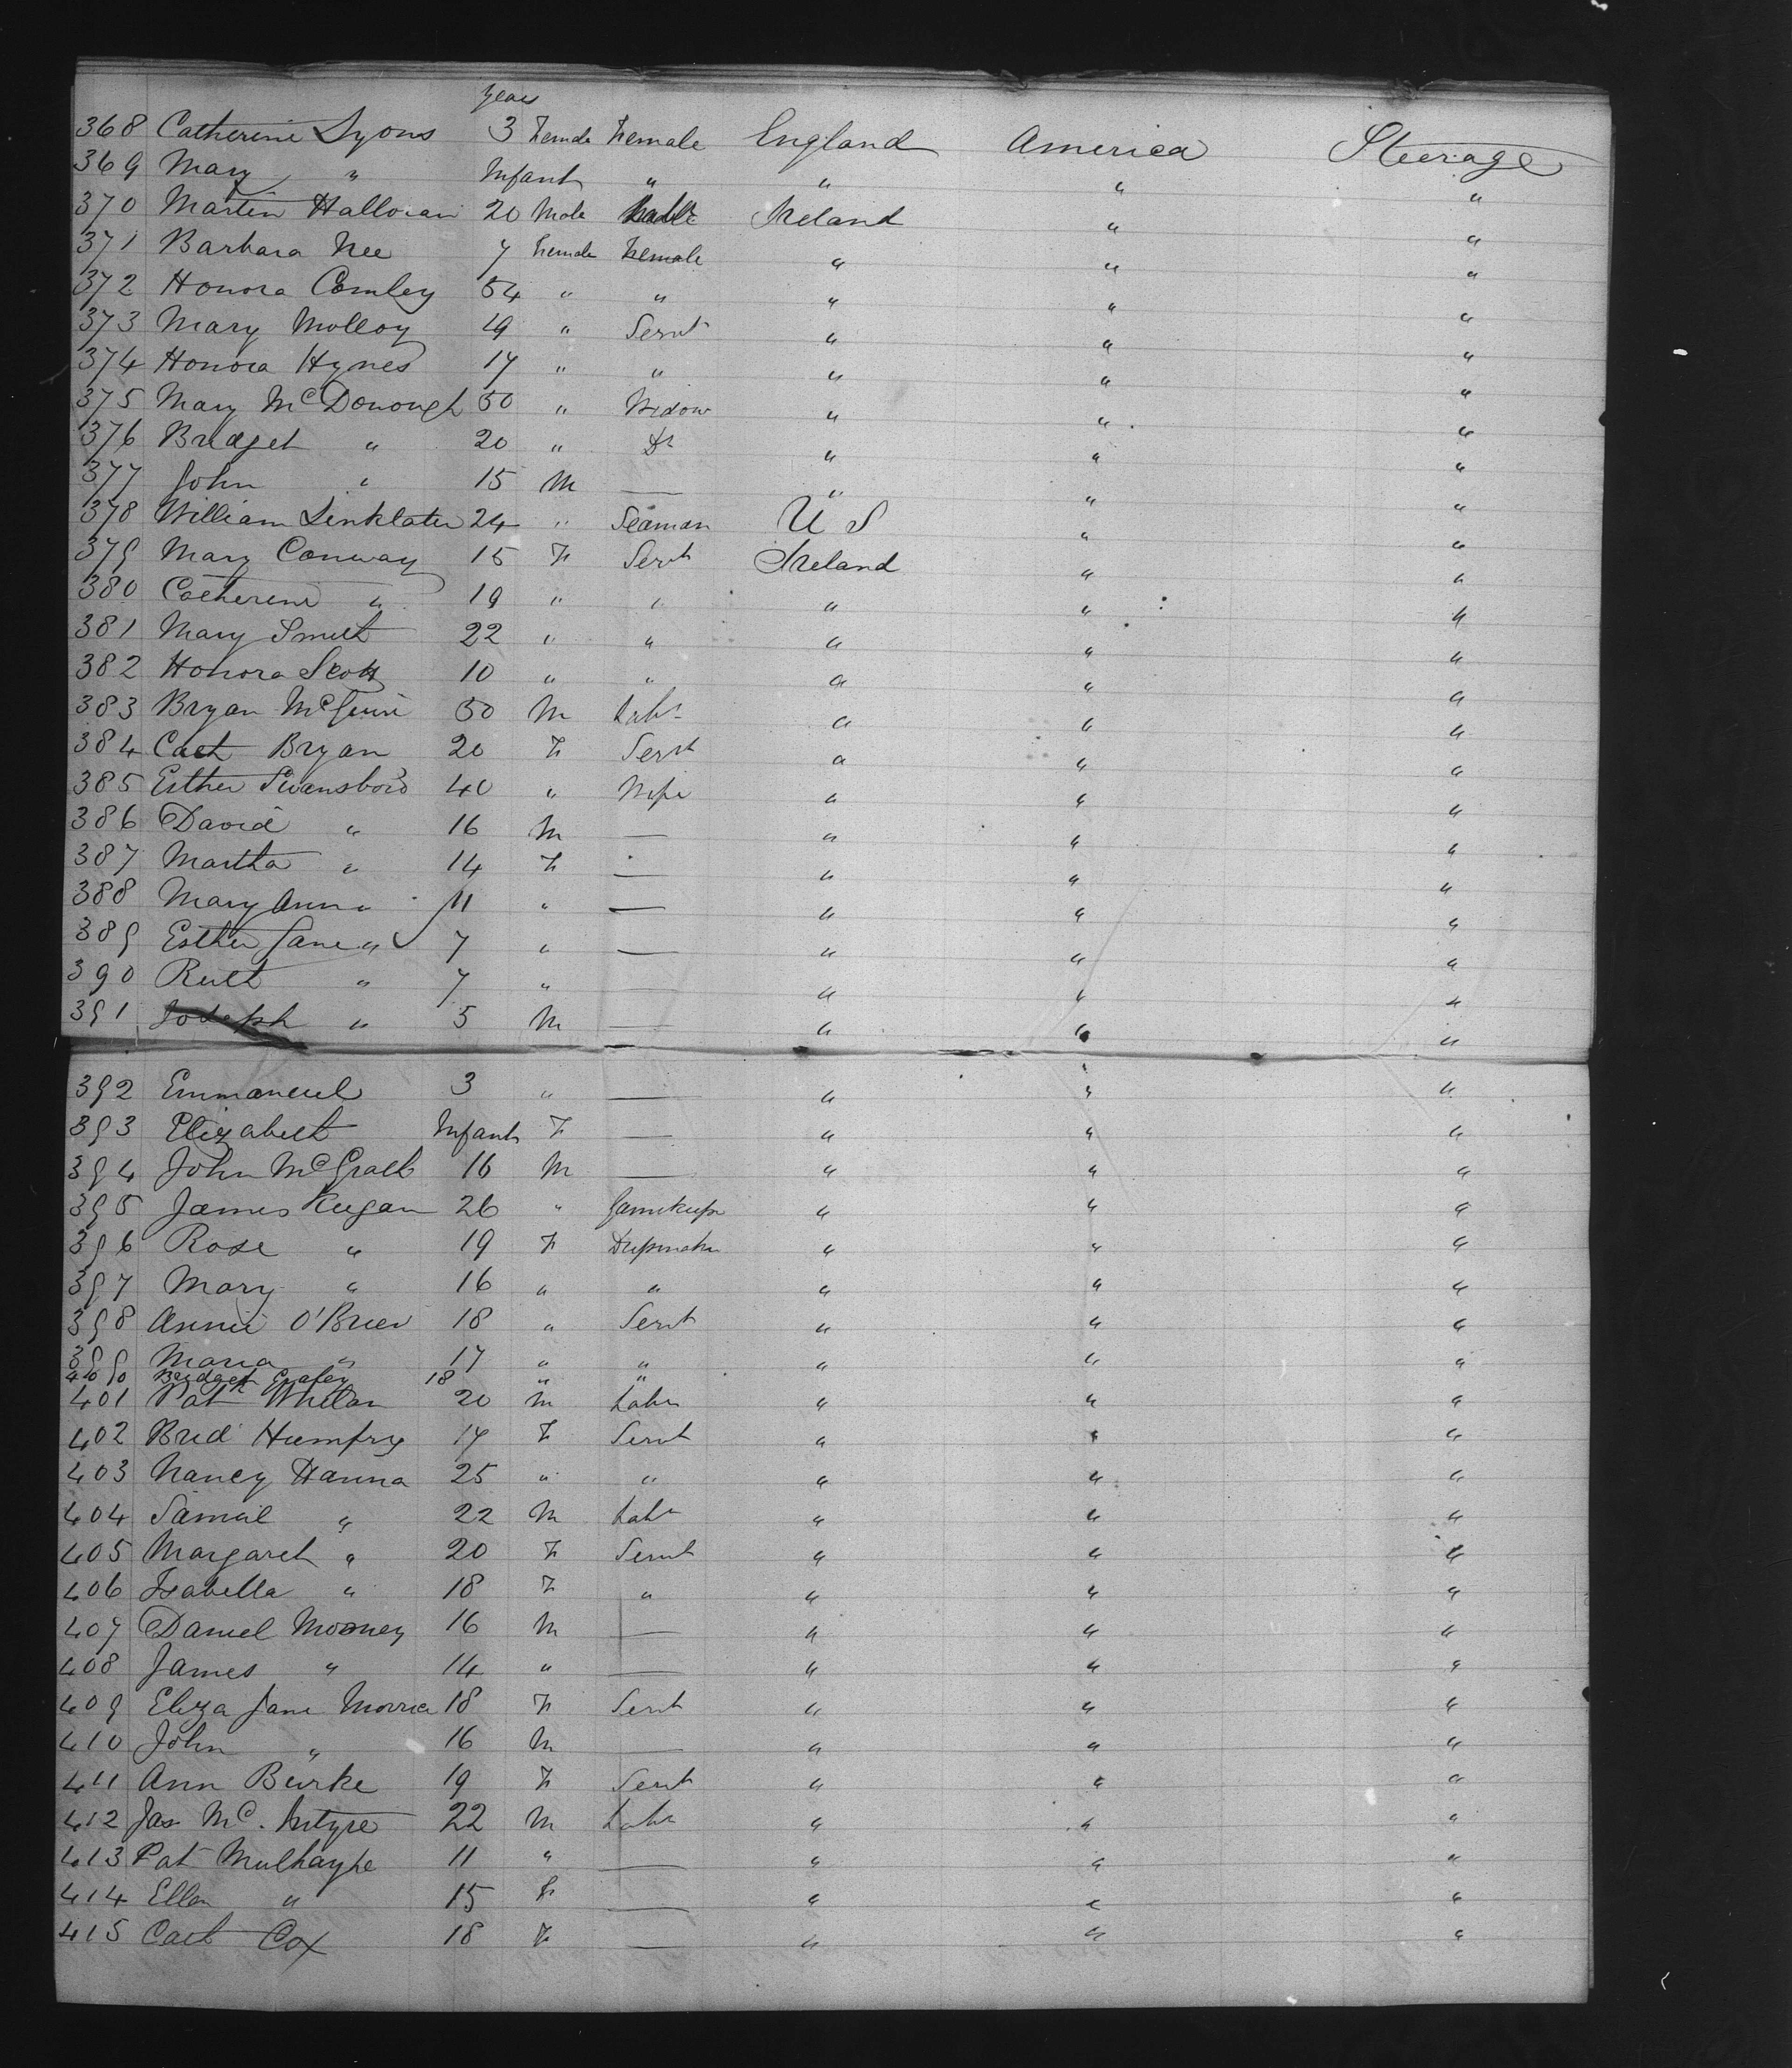 years
368 Catherine Lyons 3 Female Female England America Steerage
369 Mary " Infant " " " "
370 Martin Halloran 20 Male Ireland " "
371 Barbara Nee 7 Female Female " " "
372 Honora Comley 54 " " " " "
373 Mary Molloy 19 " Servt " " "
374 Honora Hynes 17 " " " " "
375 Mary McDonough 50 " Widow " " "
376 Bridget " 20 " " " "
377 John " 15 M — " " "
378 William Linklater 24 " Seaman U S " "
379 Mary Conway 15 F Servt Ireland " "
380 Catherine " 19 " " " " "
381 Mary Smith 22 " " " " "
382 Honora Scott 10 " " " " "
383 Bryan McGuire 50 M Labr " " "
384 Cath Bryan 20 F Servt " " "
385 Esther Swansboro 40 " Wife " " "
386 David " 16 M — " " "
387 Martha " 14 F — " " "
388 Mary Ann " 11 " — " " "
389 Esther Jane " 7 " — " " "
390 Ruth " 7 " — " " "
391 Joseph " 5 M — " " "
392 Emmanuel 3 " — " " "
393 Elizabeth Infant F — " " "
394 John McGrath 16 M — " " "
395 James Keegan 26 " Gamekeepr " " "
396 Rose " 19 F Dressmakr " " "
397 Mary " 16 " " " " "
398 Annie O'Brien 18 " Servt " " "
399 Maria " 17 " " " " "
400 Bridget 18 " "
401 Pat Whelan 20 M Labr " " "
402 Brid Humfry 17 F Servt " " "
403 Nancy Hanna 25 " " " " "
404 Samuel " 22 M Labr " " "
405 Margaret " 20 F Servt " " "
406 Isabella " 18 F " " " "
407 Daniel Mooney 16 M — " " "
408 James " 14 " — " " "
409 Eliza Jane 18 F Servt " " "
410 John " 16 M — " " "
411 Ann Burke 19 F Servt " " "
412 Jas McIntyre 22 M Labr " " "
413 Pat 11 " — " " "
414 Ellen " 15 F — " " "
415 Cath Cox 18 F — " " "